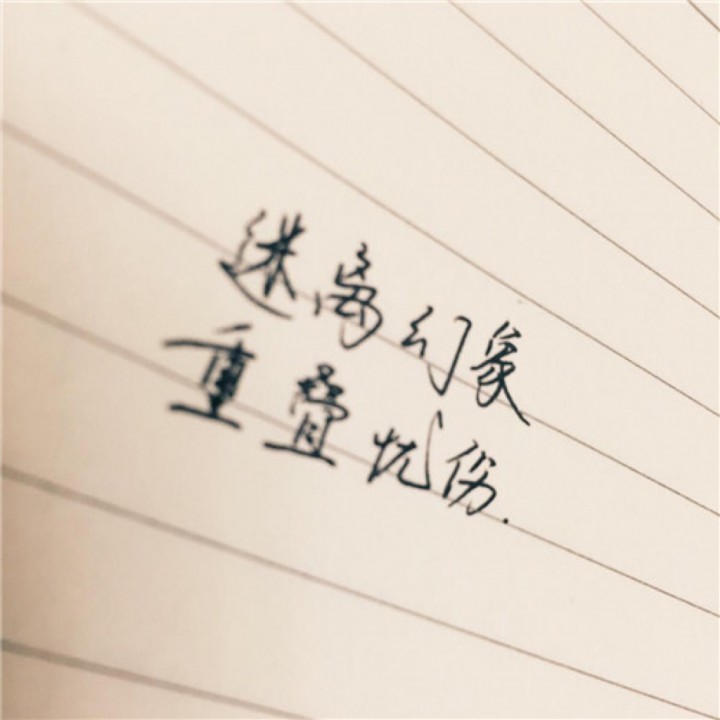 迷离幻象
重叠忧伤.